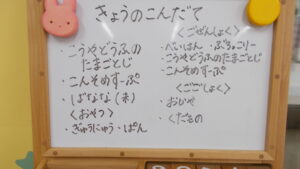 きょうのこんだて
・こうやどうふの
たまごとじ
・こんそめすーぷ
・ばなな(未)
〈おやつ〉
・ぎゅうにゅう・ぱん
〈ごぜんしょく〉
・べいはん・ぶろっこりー
・こうやどうふのたまごとじ
・こんそめすーぷ
〈ごごしょく〉
・おじや
・くだもの